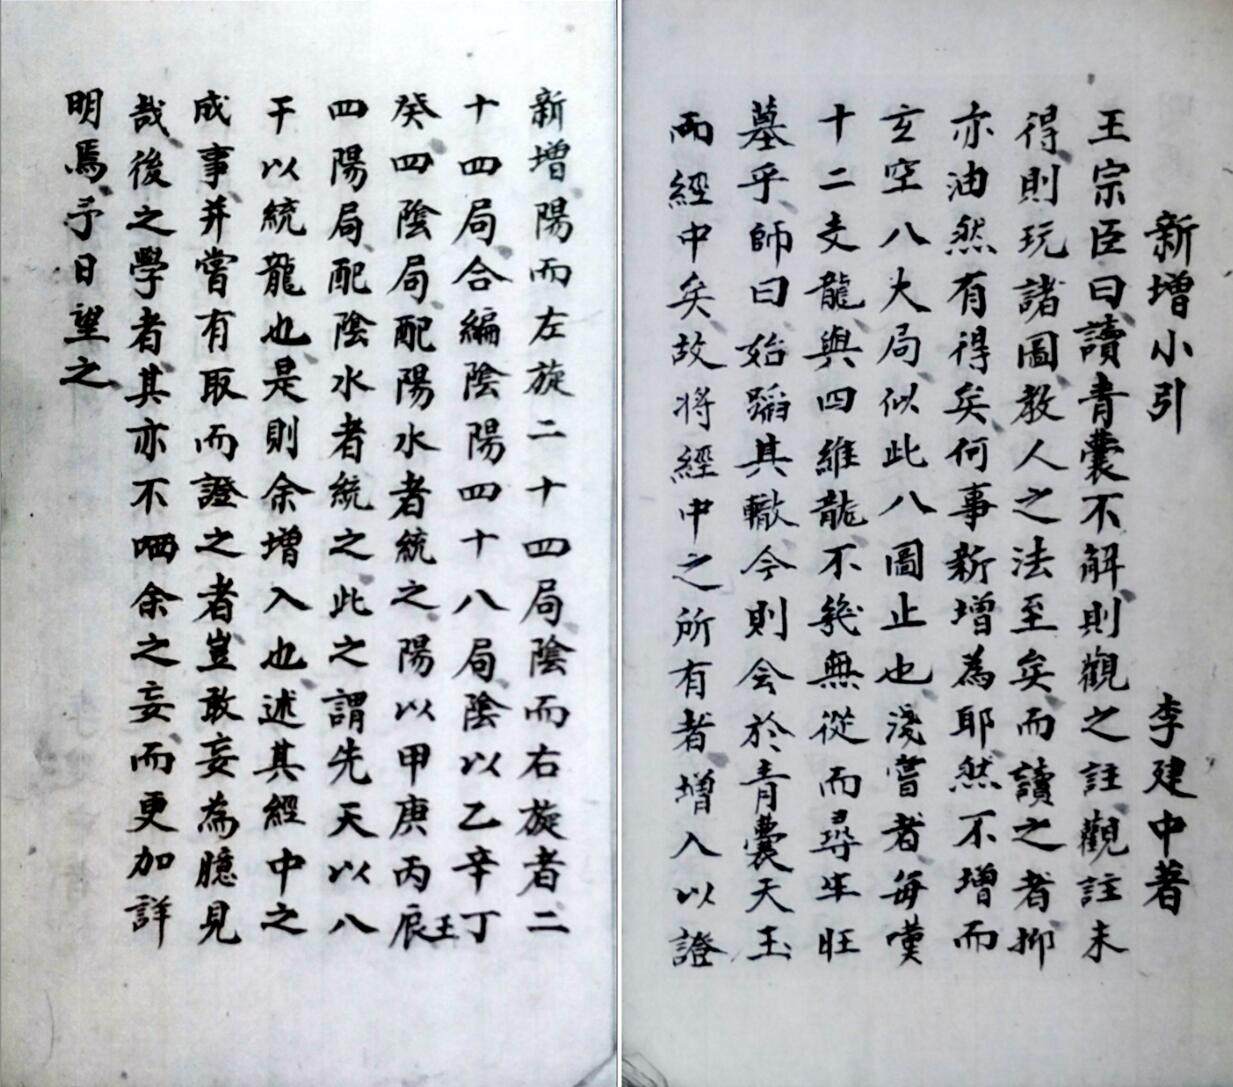 新增小引 李建中著
王宗臣曰讀青囊不解則觀之註觀註未
得則玩諸圖教人之法至矣而讀之者抑
亦油然有得矣何事新增為耶然不增而
玄空八大局似此八圖止也淺嘗者每嘆
十二支龍與四維龍不幾無從而尋生旺
墓乎師曰始蹈其轍今則会於青囊天玉
兩經中矣故將經中之所有者增入以證
新增陽而左旋二十四局陰而右旋者二
十四局合編陰陽四十八局陰以乙辛丁
癸四陰局配陽水者統之陽以甲庚丙壬
四陽局配陰水者統之此之謂先天以八
干以統龍也是則余增入也述其經中之
成事并嘗有取而證之者豈敢妄為臆見
哉後之學者其亦不哂余之妄而更加詳
明焉予日望之